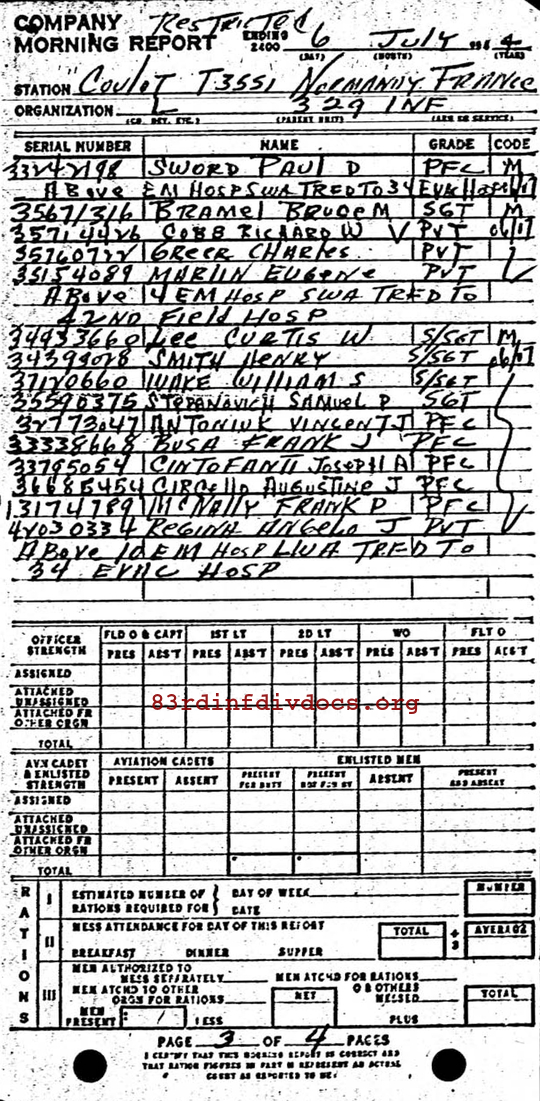 COMPANY RESTRICTED
MORNING REPORT ENDING 2400 6 July 1944
(DAY) (MONTH) (YEAR)
STATION T3551 NORMANDY FRANCE
ORGANIZATION L 329 INF
(CO. DET. ETC.) (PARENT UNIT) (ARM OR SERVICE)
SERIAL NUMBER NAME GRADE CODE
33242198 SWORD PAUL D PFC M
ABove EM HOSP SWA TRED TO 34 EVAC HOSP
35671316 BRAMEl BRUCE M SGT M
35714426 COBB RICHARD W V PVT
35760722 GREER CHARles PVT
35154089 MARLIN EUGENe PVT
ABove 4 EM HOSP SWA TRED TO
42ND FIelD HOSP
34933660 Lee CURTIS W S/SGT M
34399028 SMITH HENRY S/SGT
37120660 WAKE WILLIAM S S/SGT
35590375 STEPANOVICH SAMUEL P SGT
32773047 ANTONIUK VINCENT J PFC
33338668 BUSA FRANK J PFC
33795054 CINTOFANTI JOSEPH A PFC
36685454 CIRCELLO AUGUSTINE J PFC
13174789 McNALLY FRANK P PFC
42030334 REGINA ANGELO J PVT
ABove 10 EM HOSP LWA TRED TO
34 EVAC HOSP
OFFICER STRENGTH FLD O & CAPT 1ST LT 2D LT WO FLT O
PRES ABS'T PRES ABS'T PRES ABS'T PRES ABS'T PRES ABS'T
ASSIGNED
ATTACHED UNASSIGNED
83rdinfdivdocs.org
ATTACHED FR OTHER ORGN
TOTAL
AVN CADET & ENLISTED STRENGTH AVIATION CADETS ENLISTED MEN
PRESENT ABSENT PRESENT FOR DUTY PRESENT NOT FOR DY ABSENT PRESENT AND ABSENT
ASSIGNED
ATTACHED UNASSIGNED
ATTACHED FR OTHER ORGN
TOTAL
RATIONS
I ESTIMATED NUMBER OF RATIONS REQUIRED FOR } DAY OF WEEK NUMBER
DATE
II MESS ATTENDANCE FOR DAY OF THIS REPORT TOTAL ÷ 3 AVERAGE
BREAKFAST DINNER SUPPER
III MEN AUTHORIZED TO MESS SEPARATELY MEN ATCHD FOR RATIONS
MEN ATCHD TO OTHER ORGN FOR RATIONS NET OTHERS MESSED TOTAL
MEN PRESENT LESS PLUS
PAGE 3 OF 4 PAGES
I CERTIFY THAT THIS MORNING REPORT IS CORRECT AND
THAT RATION FIGURES IN PART III REPRESENT AN ACTUAL
COUNT AS REPORTED TO ME